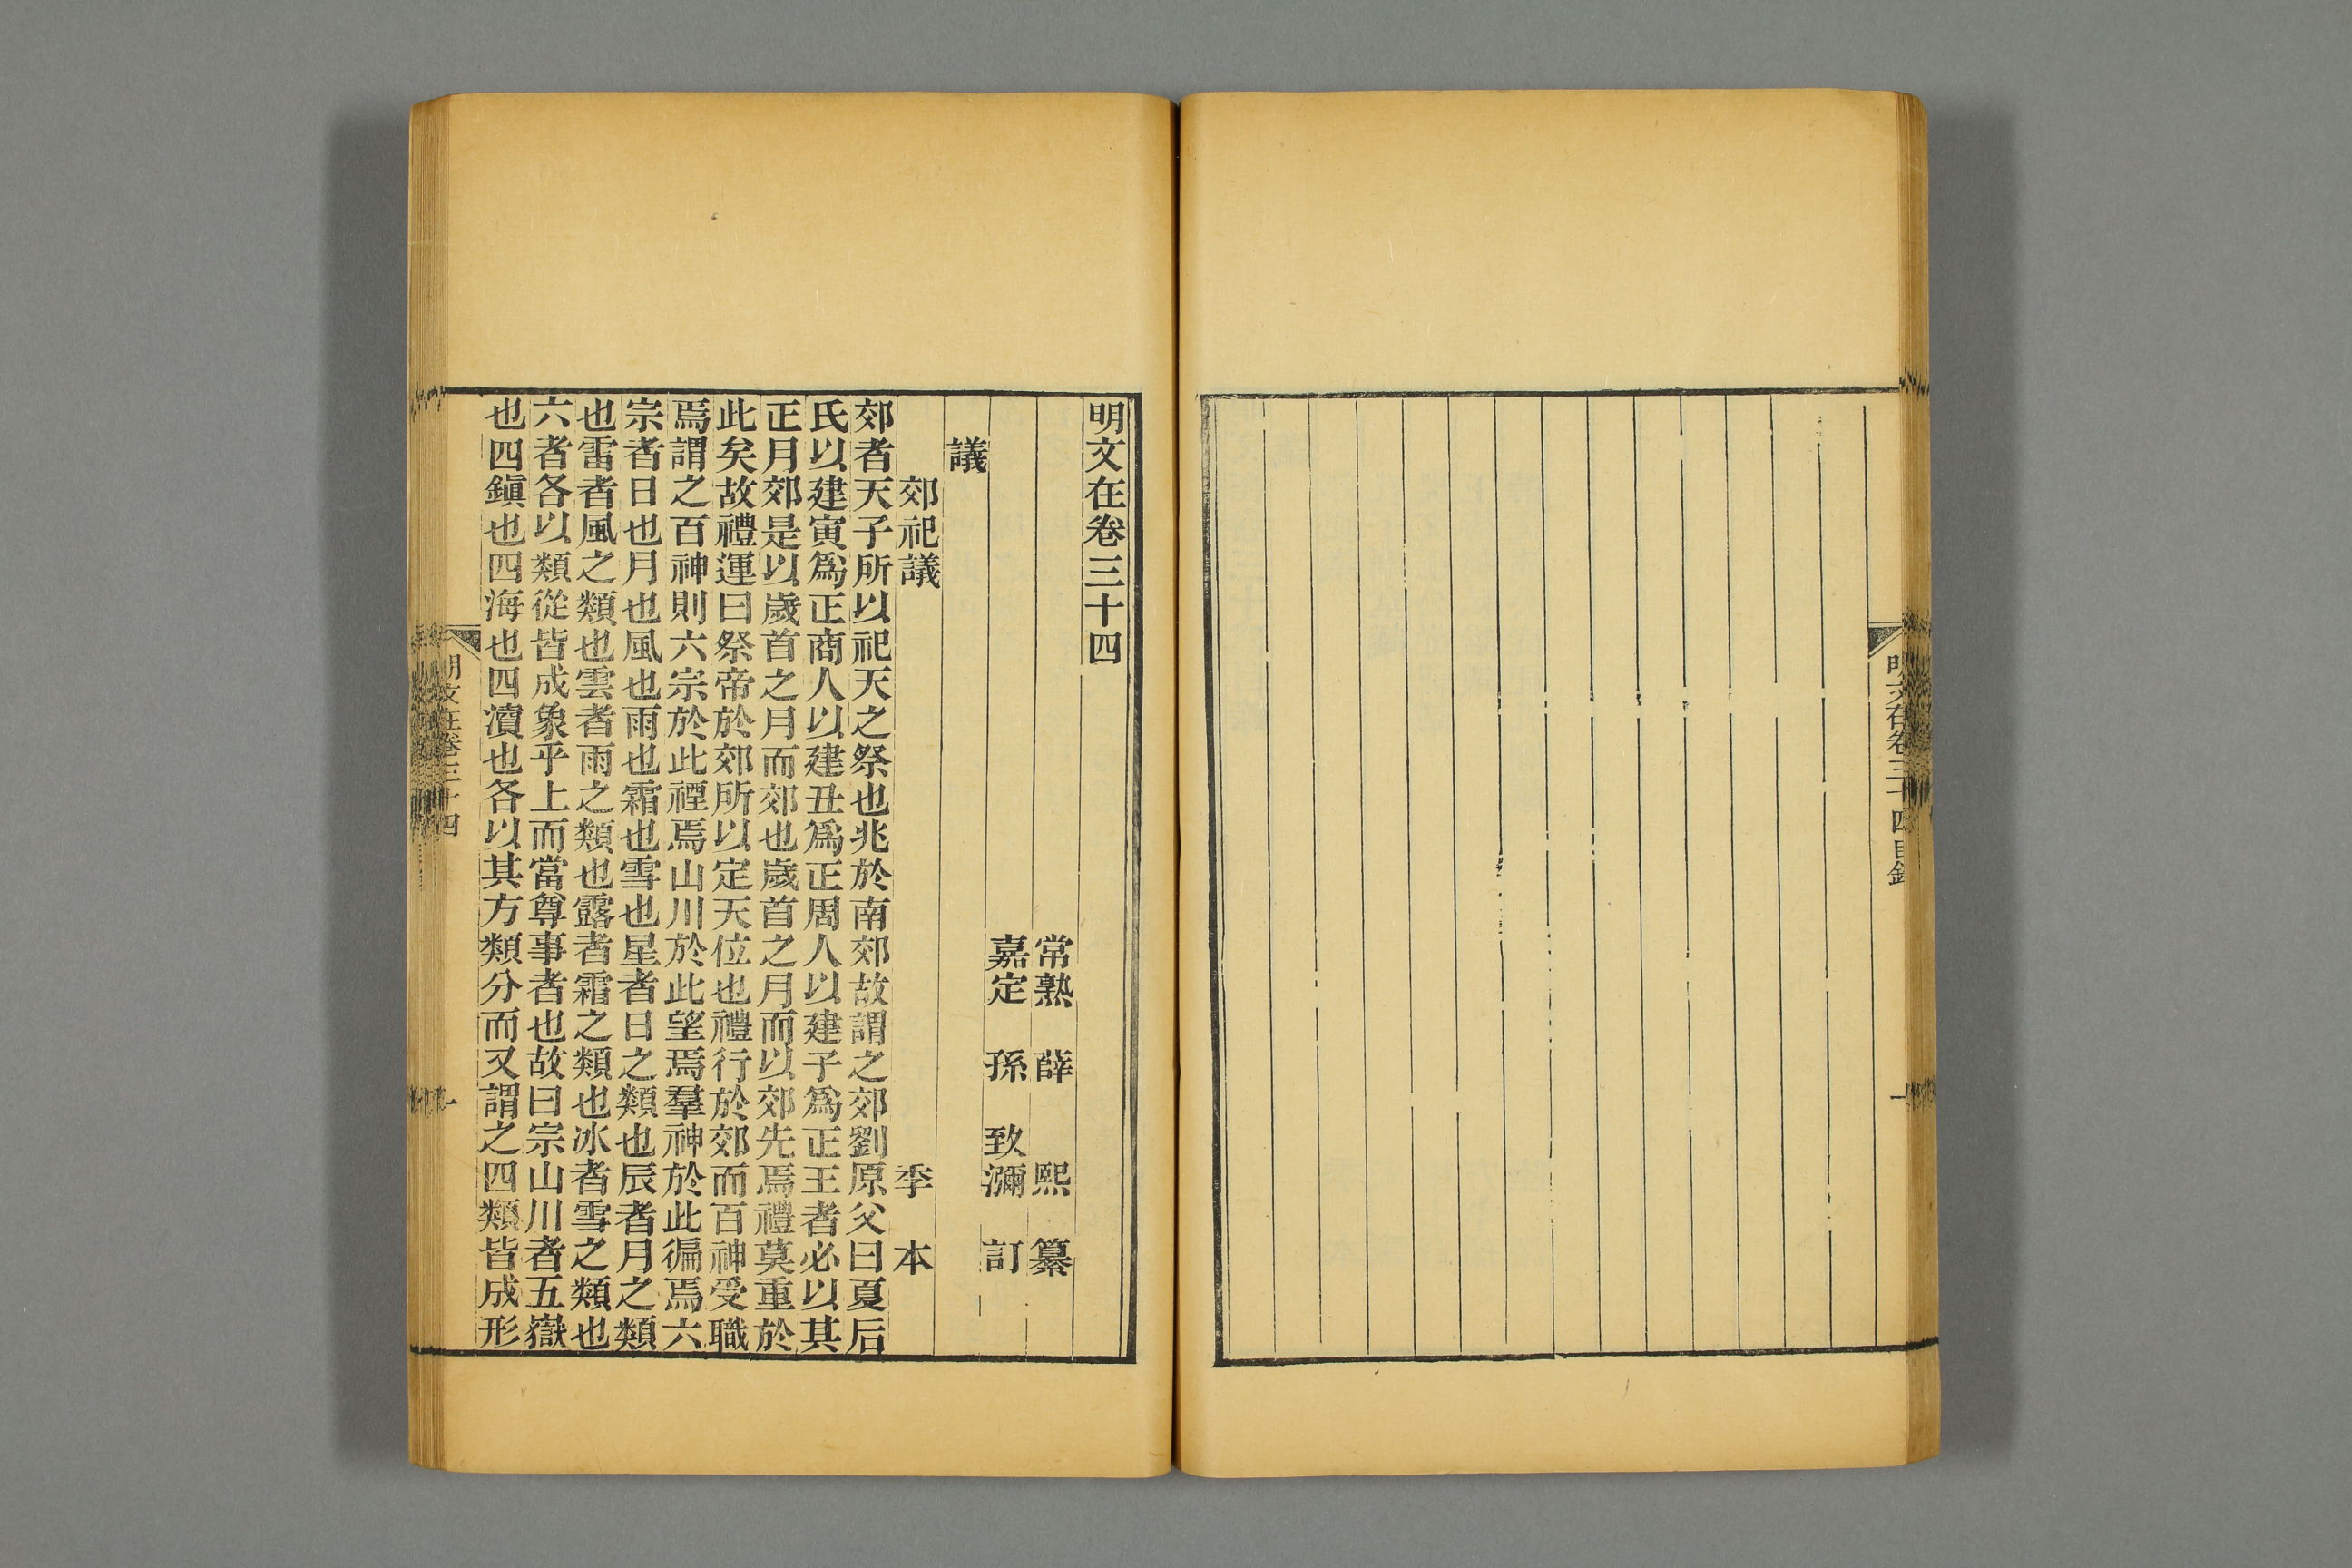 明文在卷三十四目錄
一
明文在卷三十四
常熟 薛 熙 纂
嘉定 孫 致彌 訂
議
郊祀議 季 本
郊者天子所以祀天之祭也兆於南郊故謂之郊劉原父曰夏后
氏以建寅爲正商人以建丑爲正周人以建子爲正王者必以其
正月郊是以歲首之月而郊也歲首之月而以郊先焉禮莫重於
此矣故禮運曰祭帝於郊所以定天位也禮行於郊而百神受職
焉謂之百神則六宗於此禋焉山川於此望焉羣神於此徧焉六
宗者日也月也風也雨也霜也雪也星者日之類也辰者月之類
也雷者風之類也雲者雨之類也露者霜之類也冰者雪之類也
六者各以類從皆成象乎上而當尊事者也故曰宗山川者五嶽
也四鎭也四海也四瀆也各以其方類分而又謂之四類皆成形
明文在卷三十四
一